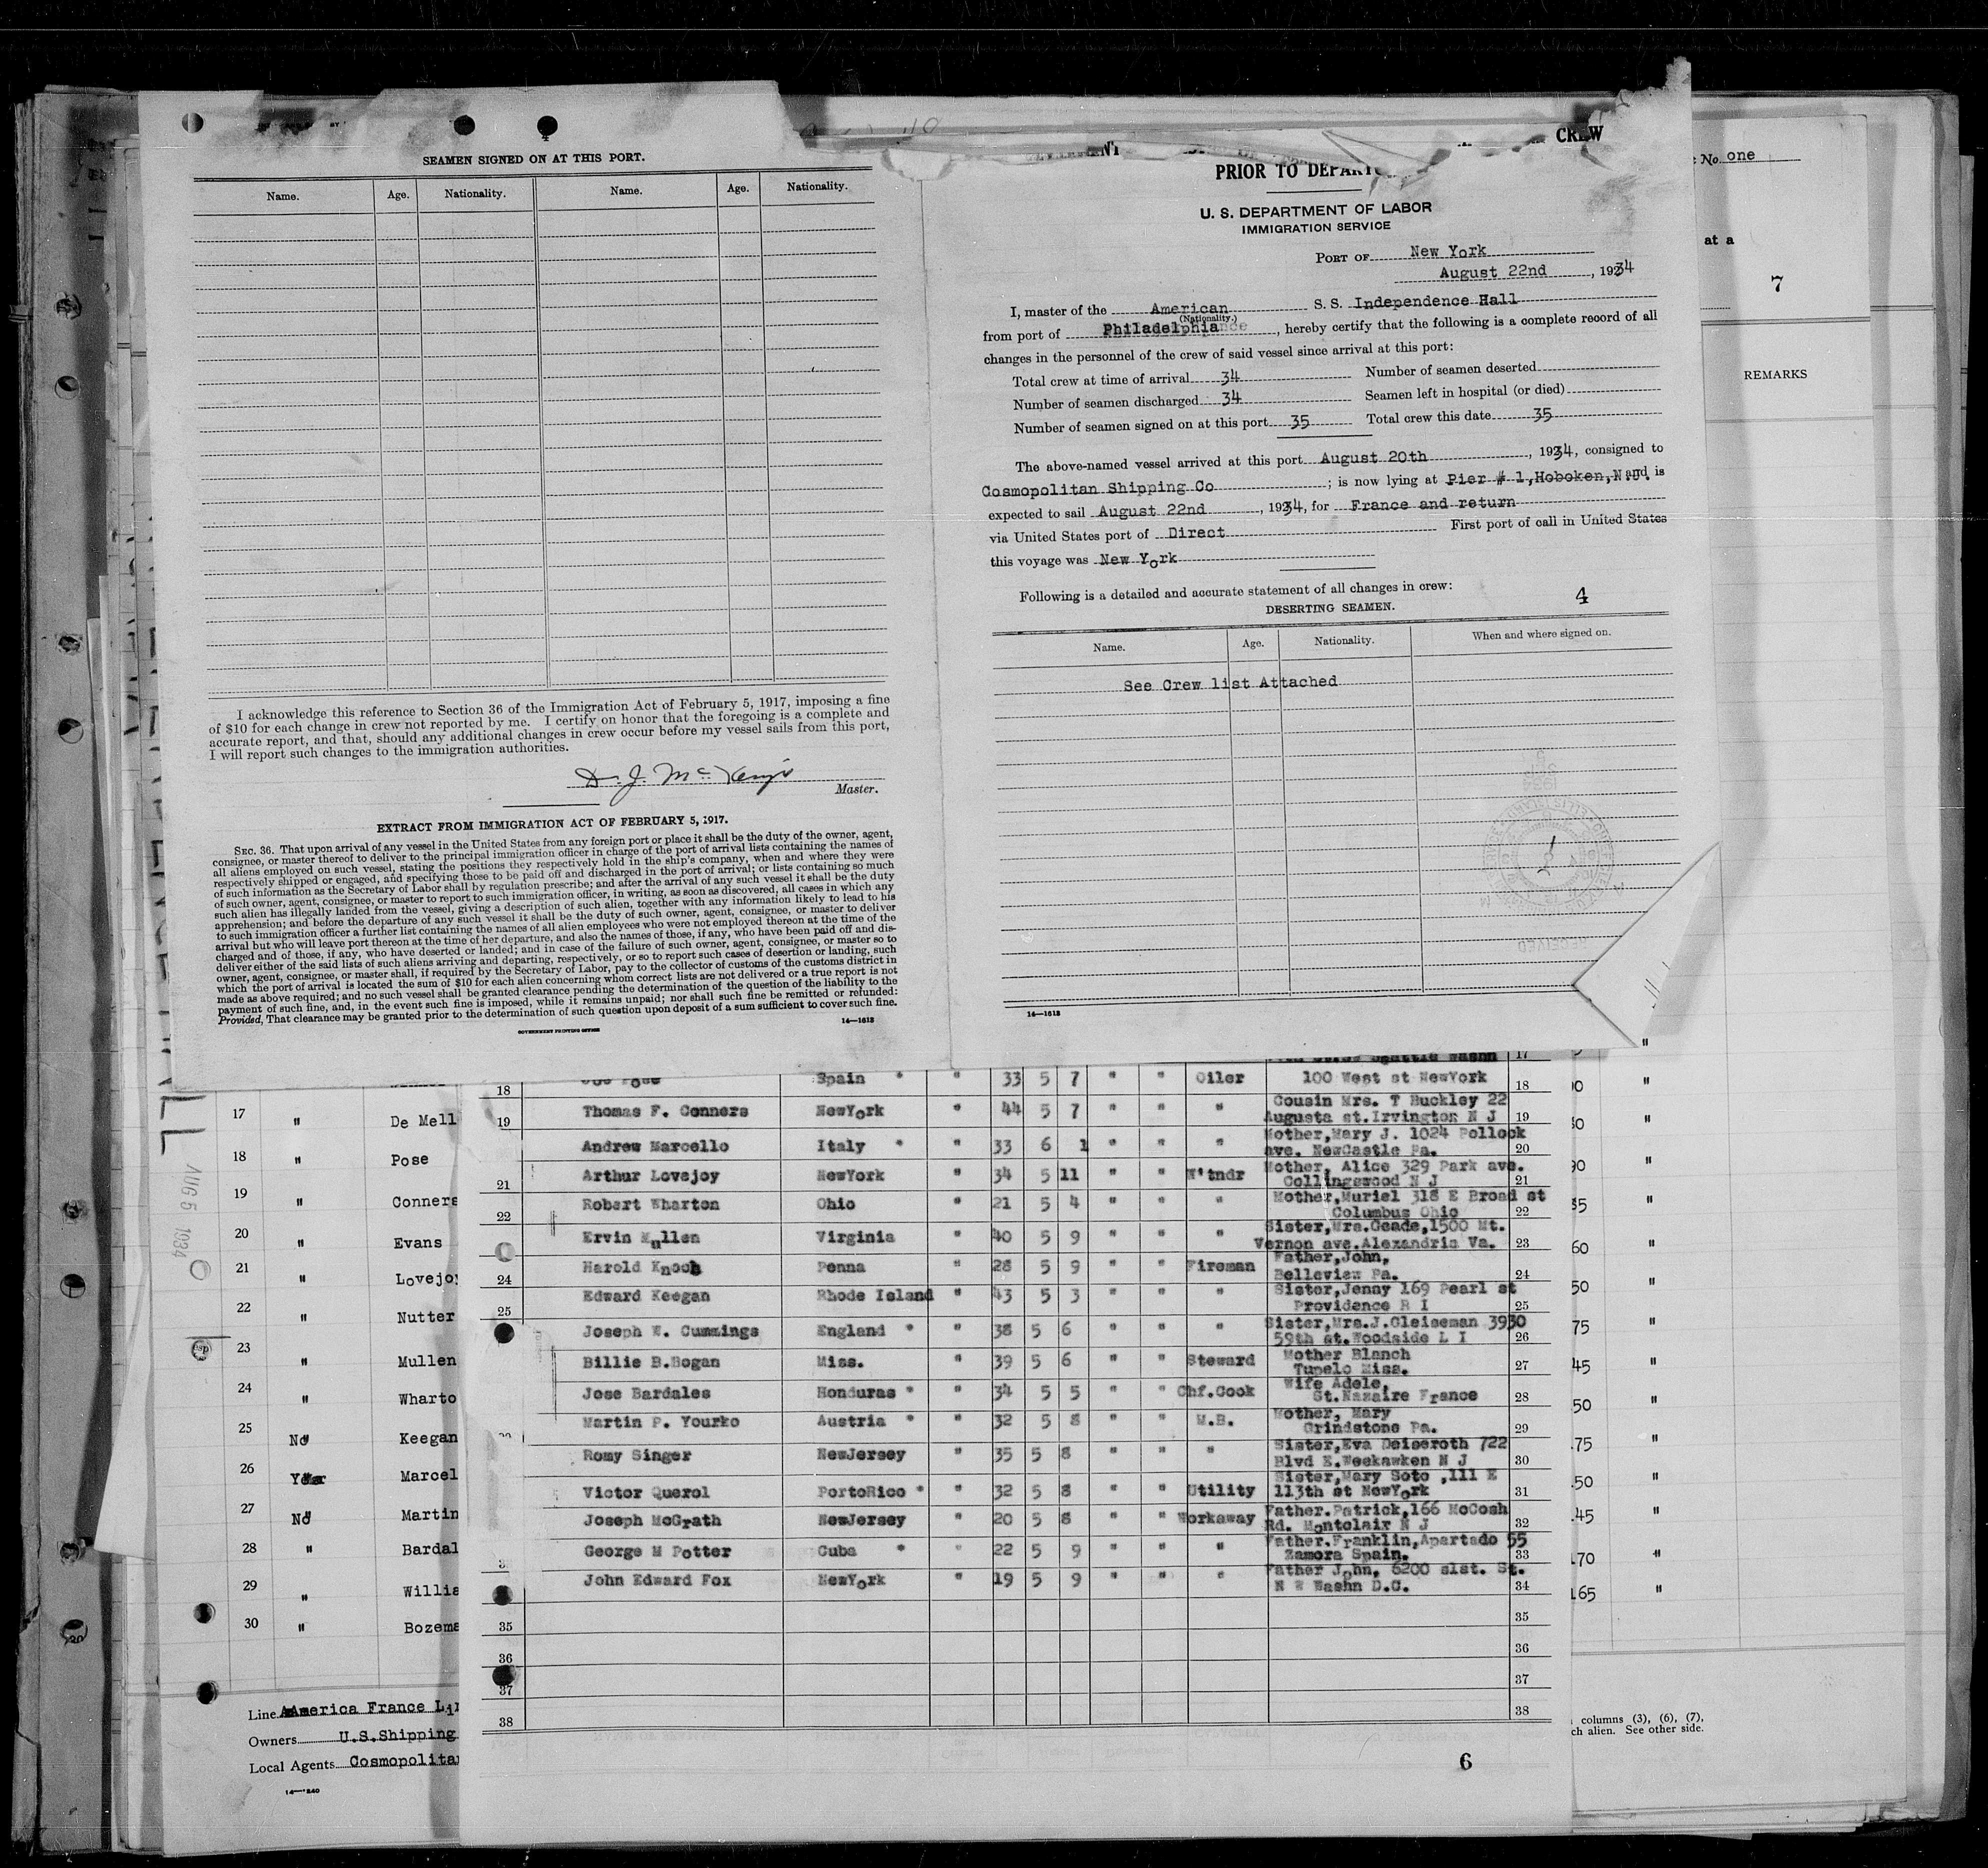 SEAMEN SIGNED ON AT THIS PORT.
Name. Age. Nationality. Name. Age. Nationality.
I acknowledge this reference to Section 36 of the Immigration Act of February 5, 1917, imposing a fine
of $10 for each change in crew not reported by me. I certify on honor that the foregoing is a complete and
accurate report, and that, should any additional changes in crew occur before my vessel sails from this port,
I will report such changes to the immigration authorities.
Master.
EXTRACT FROM IMMIGRATION ACT OF FEBRUARY 5, 1917.
SEC. 36. That upon arrival of any vessel in the United States from any foreign port or place it shall be the duty of the owner, agent,
consignee, or master thereof to deliver to the principal immigration officer in charge of the port of arrival lists containing the names of
all aliens employed on such vessel, stating the positions they respectively hold in the ship's company, when and where they were
respectively shipped or engaged, and specifying those to be paid off and discharged in the port of arrival; or lists containing so much
of such information as the Secretary of Labor shall by regulation prescribe; and after the arrival of any such vessel it shall be the duty
of such owner, agent, consignee, or master to report to such immigration officer, in writing, as soon as discovered, all cases in which any
such alien has illegally landed from the vessel, giving a description of such alien, together with any information likely to lead to his
apprehension; and before the departure of any such vessel it shall be the duty of such owner, agent, consignee, or master to deliver
to such immigration officer a further list containing the names of all alien employees who were not employed thereon at the time of the
arrival but who will leave port thereon at the time of her departure, and also the names of those, if any, who have been paid off and dis-
charged and of those, if any, who have deserted or landed; and in case of the failure of such owner, agent, consignee, or master so to
deliver either of the said lists of such aliens arriving and departing, respectively, or so to report such cases of desertion or landing, such
owner, agent, consignee, or master shall, if required by the Secretary of Labor, pay to the collector of customs of the customs district in
which the port of arrival is located the sum of $10 for each alien concerning whom correct lists are not delivered or a true report is not
made as above required; and no such vessel shall be granted clearance pending the determination of the question of the liability to the
payment of such fine, and, in the event such fine is imposed, while it remains unpaid; nor shall such fine be remitted or refunded:
Provided, That clearance may be granted prior to the determination of such question upon deposit of a sum sufficient to cover such fine.
GOVERNMENT PRINTING OFFICE 14—1613
CREW
PRIOR TO
U. S. DEPARTMENT OF LABOR
IMMIGRATION SERVICE
PORT OF New York
August 22nd, 1934
I, master of the American S. S. Independence Hall
(Nationality.)
from port of Philadelphia, hereby certify that the following is a complete record of all
changes in the personnel of the crew of said vessel since arrival at this port:
Total crew at time of arrival 34 Number of seamen deserted
Number of seamen discharged 34 Seamen left in hospital (or died)
Number of seamen signed on at this port 35 Total crew this date 35
The above-named vessel arrived at this port August 20th, 1934, consigned to
Cosmopolitan Shipping Co; is now lying at Pier # 1, Hoboken, N.J. and is
expected to sail August 22nd, 1934, for France and return
via United States port of Direct First port of call in United States
this voyage was New York
Following is a detailed and accurate statement of all changes in crew:
4
DESERTING SEAMEN.
Name. Age. Nationality. When and where signed on.
See Crew list Attached
14—1613
No. one
at a
7
REMARKS
17
18 Spain * " 33 5 7 " " Oiler 100 West st NewYork 18
19 Thomas F. Conners NewYork " 44 5 7 " " " Cousin Mrs. T Buckley 22
Augusta st.Irvington N J 19
Andrew Marcello Italy * " 33 6 1 " " " Mother,Mary J. 1024 Pollock
ave. NewCastle Pa. 20
21 Arthur Lovejoy NewYork " 34 5 11 " " W'tndr Mother, Alice 329 Park ave.
Collingswood N J 21
22 Robert Wharton Ohio " 21 5 4 " " " Mother,Muriel 318 E Broad st
Columbus Ohio 22
Ervin Mullen Virginia " 40 5 9 " " " Sister,Mrs.Geade,1500 Mt.
Vernon ave.Alexandria Va. 23
24 Harold Knoch Penna " 28 5 9 " " Fireman Father,John,
Belleview Pa. 24
25 Edward Keegan Rhode Island " 43 5 3 " " " Sister,Jenny 169 Pearl st
Providence R I 25
Joseph W. Cummings England * " 38 5 6 " " " Sister,Mrs.J.Gleiseman 3930
59th st.Woodside L I 26
Billie B.Hogan Miss. " 39 5 6 " " Steward Mother Blanch
Tupelo Miss. 27
Jose Bardales Honduras * " 34 5 5 " " Chf.Cook Wife Adele,
St.Nazaire France 28
Martin P. Yourko Austria * " 32 5 8 " " M.B. Mother, Mary
Grindstone Pa. 29
Romy Singer NewJersey " 35 5 8 " " " Sister,Eva Deiseroth 722
Blvd E.Weekawken N J 30
Victor Querol PortoRico * " 32 5 8 " " Utility Sister,Mary Soto ,111 E
113th st NewYork 31
Joseph McGrath NewJersey " 20 5 8 " " Workaway Father.Patrick,166 McCosh
Rd. Montclair N J 32
George M Potter Cuba * " 22 5 9 " " " Father.Franklin,Apartado 55
Zamora Spain. 33
John Edward Fox NewYork " 19 5 9 " " " Father John, 5200 31st. St.
N W Washn D.C. 34
35 35
36 36
37 37
38 38
6
17 " De Mell
18 " Pose
19 " Conners
20 " Evans
21 " Lovejoy
22 " Nutter
23 " Mullen
24 " Wharto
25 No Keegan
26 Yes Marcel
27 No Martin
28 " Bardal
29 " Willia
30 " Bozema
AUG 5 1934
Line America France Lin
Owners U.S.Shipping
Local Agents Cosmopolitan
14—1240
columns (3), (6), (7),
ch alien. See other side.